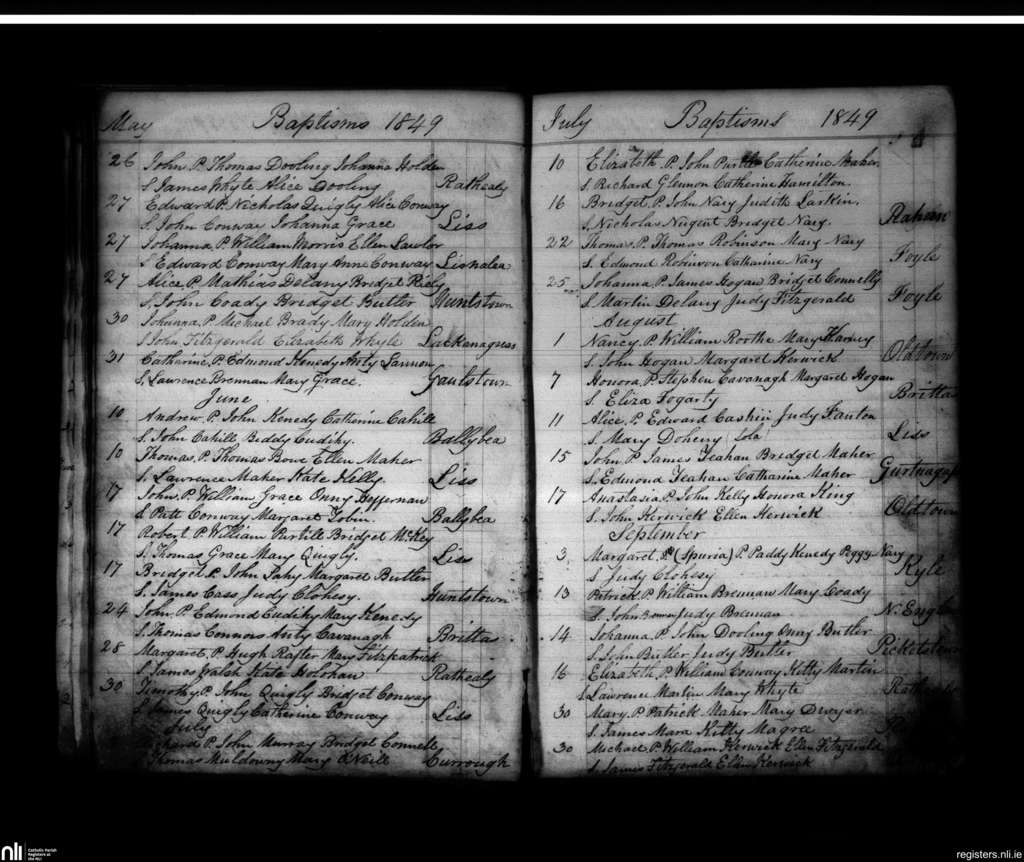 May Baptisms 1849
26 John P. Thomas Dooling Johanna Holden
S. James Whyte Alice Dooling Rathealy
27 Edward P. Nicholas Quigly Alice Conway
S. John Conway Johanna Grace Liss
27 Johanna P. William Morris Ellen Lawlor
S. Edward Conway Mary Anne Conway Lisnalea
27 Alice P. Mathias Delany Bridget Riely
S. John Coady Bridget Butler Huntstown
30 Johanna P. Michael Brady Mary Holden
S. John Fitzgerald Elizabeth Whyte Lackenagress
31 Catharine P. Edmond Kenedy Anty Lannon
S. Lawrence Brennan Mary Grace. Gaulstown
June
10 Andrew P. John Kenedy Catherine Cahill
S. John Cahill Biddy Cudihy. Ballybea
10 Thomas. P. Thomas Bowe Ellen Maher
S. Lawrence Maher Kate Kelly. Liss
17 John. P. William Grace Onny Heffernan
S. Patt Conway Margaret Tobin. Ballybea
17 Robert P. William Purtill Bridget McKey
S. Thomas Grace Mary Quigly. Liss
17 Bridget P. John Lahy Margaret Butler
S. James Cass Judy Clohesy. Huntstown
24 John. P. Edmond Cudihy Mary Kenedy
S. Thomas Connors Anty Cavanagh Britta
28 Margaret. P. Hugh Rafter Mary Fitzpatrick
S. James Walsh Kate Holohan Rathealy
30 Timothy P. John Quigly Bridget Conway
S. James Quigly Catherine Conway Liss
July
Richard P. John Murray Bridget Connelly
S. Thomas Muldowny Mary O'Neill Currough
July Baptisms 1849
10 Elizabeth. P. John Catherine Maher
S. Richard Glennon Catharine Hamilton.
16 Bridget. P. John Nary Judith Larkin.
S. Nicholas Nugent Bridget Nary.
22 Thomas. P. Thomas Robinson Mary Nary
S. Edmond Robinson Catharine Nary Foyle
25 Johanna. P. James Hogan Bridget Connelly
S. Martin Delany Judy Fitzgerald Foyle
August
1 Nancy. P. William Rorthe Mary
S. John Hogan Margaret Kerwick Oldtown
7 Honora. P. Stephen Cavanagh Margaret Hogan
S. Eliza Fogarty Britta
11 Alice. P. Edward Cashin Judy Fanton
S. Mary Doheny Sola Liss
15 John. P. James Teahan Bridget Maher
S. Edmond Teahan Catharine Maher
17 Anastasia. P. John Kelly Honora King
S. John Kerwick Ellen Kerwick Oldtown
September
3 Margaret. (Spuria) P. Paddy Kenedy Peggy Nary
S. Judy Clohesy Kyle
13 Patrick. P. William Brennan Mary Coady
S. John Judy Brennan
14 Johanna. P. John Dooling Onny Butler
S. John Butler Judy Butler Picketstown
16 Elizabeth. P. William Conway Kitty Martin
S. Lawrence Martin Mary Whyte
30 Mary. P. Patrick Maher Mary Dwyer
S. James Mara Kitty Magra
30 Michael. P. William Kerwick Ellen Fitzgerald
S. James Fitzgerald Ellen Kerwick
nli Catholic Parish
Registers at
the NLI
registers.nli.ie